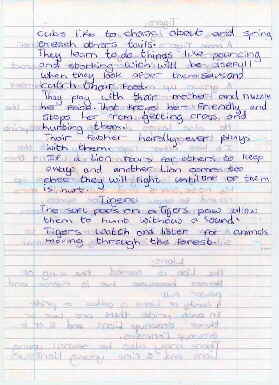 cubs like to chase about and spring
on each others tails.
They learn to do things like pouncing
and starking wich will be usefull
when they look after themselves and
catch their food.
They play with their mother and nuzzle
her head that shows her friendly and
stops her from getting cross and
hurting them.
Their father hardly ever plays
with them.
If a Lion roars for others to keep
away and another Lion comes too
close they will fight until one or them
is hurt.
Tigers
The soft pads on a Tigers paw allow
them to hunt without a sound.
Tigers watch and listen for animals
moving through the forest.